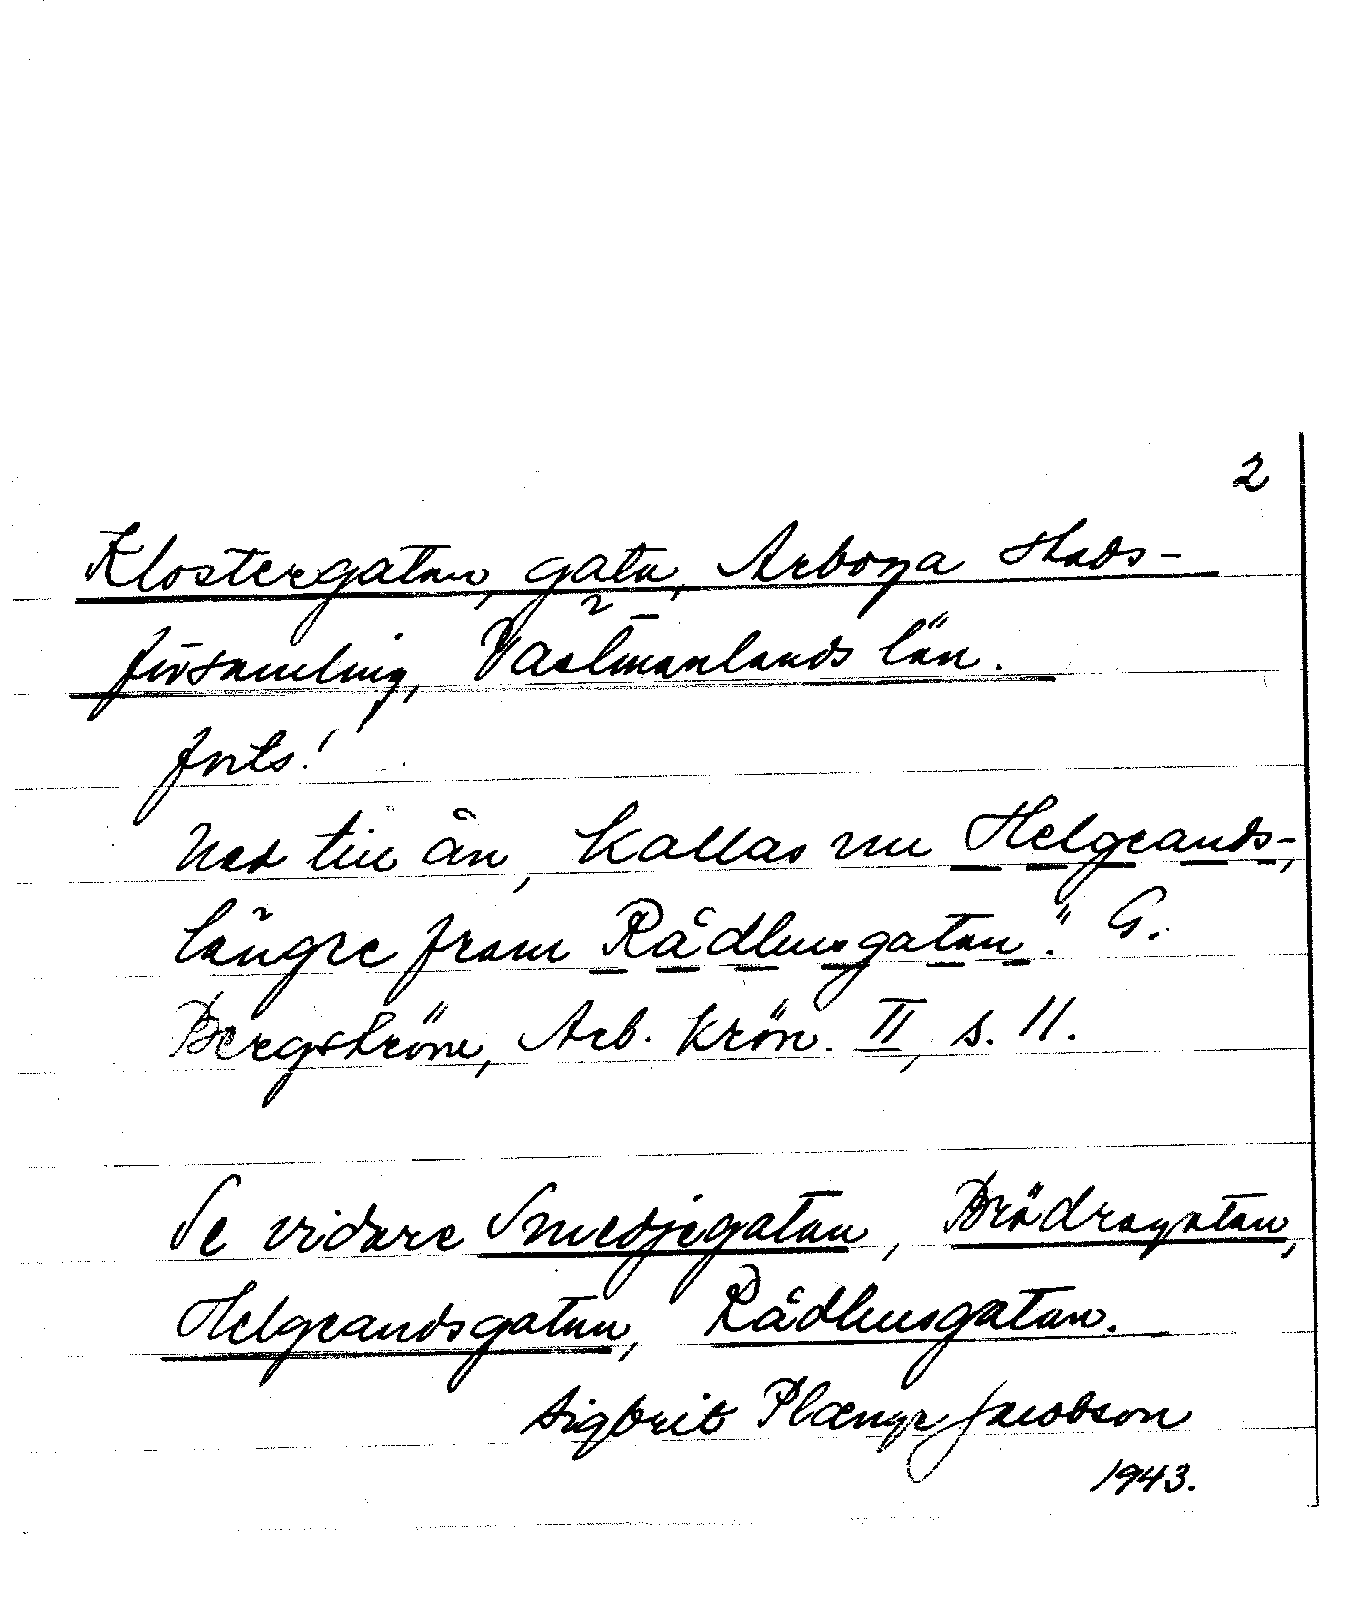 2
Klostergatan, gata, Arboga stads-
församling, Västmanlands län.
forts!
ned till ån, kallas nu Helgeands-,
längre fram Rådhusgatan." G.
Bergström, Arb. krön. II, s. 11.
Se vidare Smedjegatan, Brödragatan,
Helgeandsgatan, Rådhusgatan.
Sigbrit Plænge Jacobson
1943.